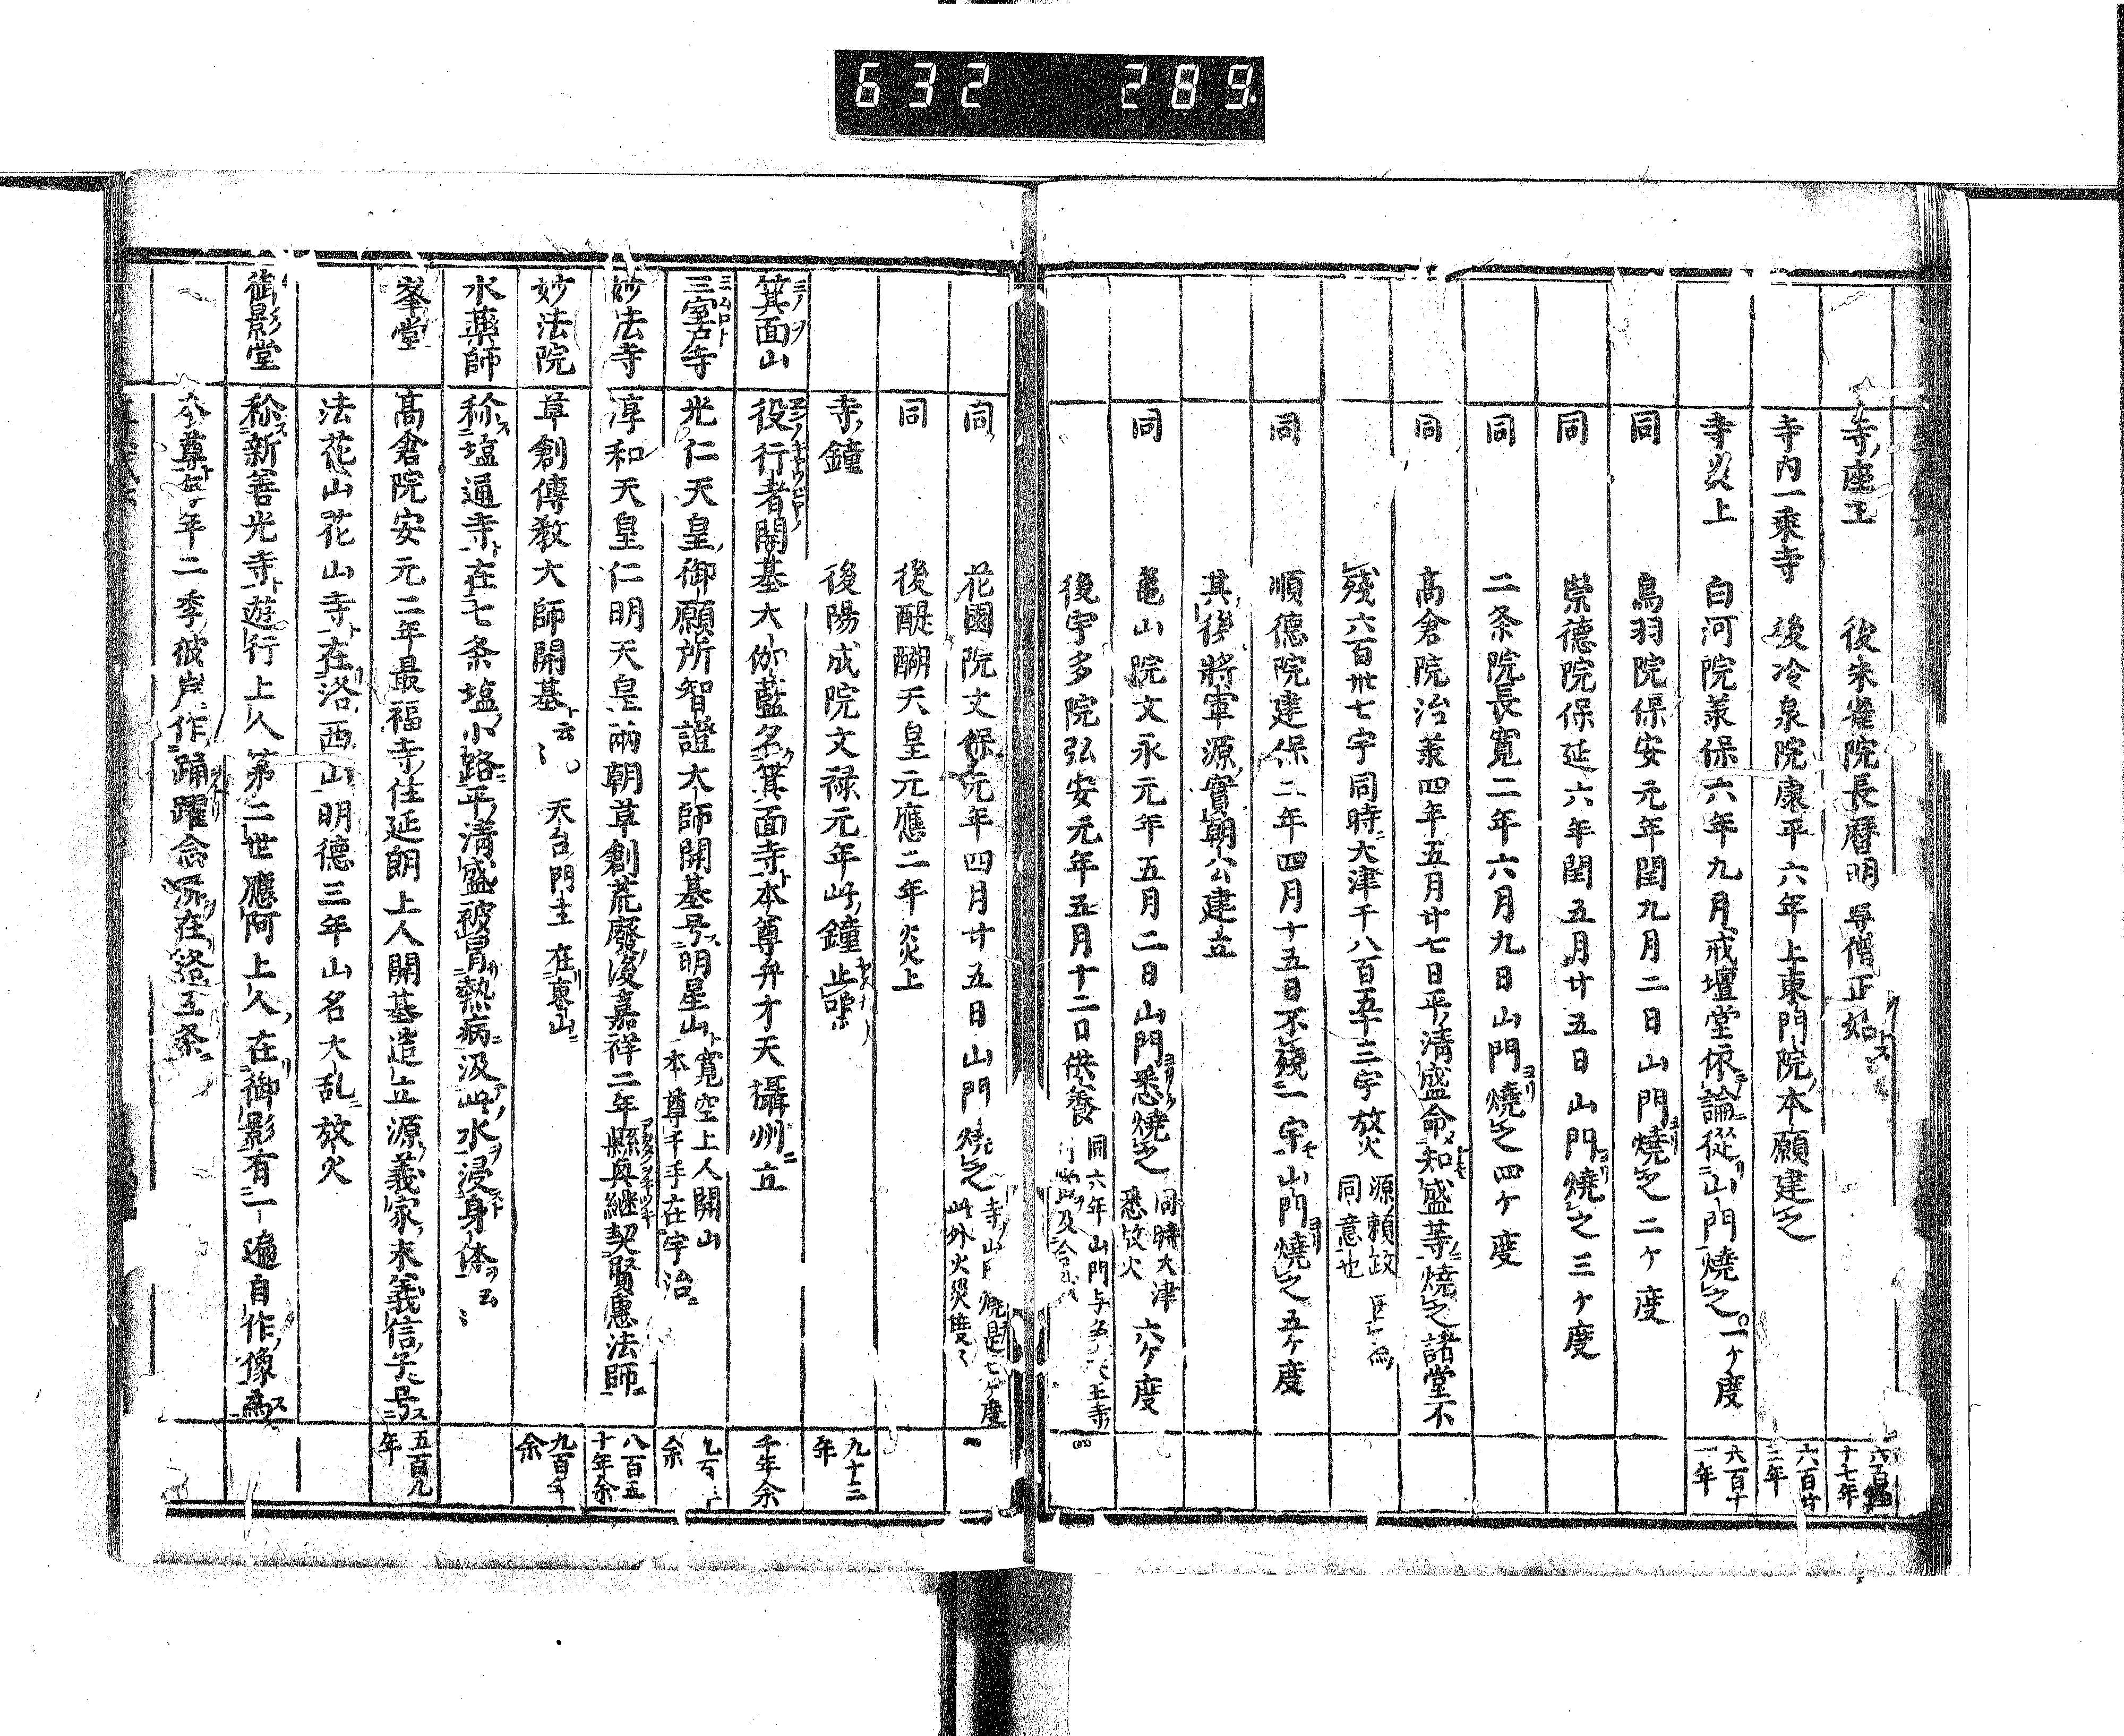 632 289
寺座主 後朱雀院長暦明尊僧正始 六百 十七年
寺内一乘寺 後冷泉院康平六年上東門院本願建之 六百廿二年
寺炎上 白河院羕保六年九月戒壇堂依論從山門燒之一ケ度 六百十一年
同 鳥羽院保安元年閏九月二日山門燒之二ケ度
同 崇德院保延六年閏五月廿五日山門燒之三ケ度
同 二条院長寛二年六月九日山門燒之四ケ度
同 高倉院治羕四年五月廿七日平清盛命知盛等燒之諸堂不
殘六百卅七宇同時大津千八百五十三宇放火 源賴政同意也
同 順德院建保二年四月十五日不殘一宇山門燒之五ケ度
其後將軍源實朝公建立
同 亀山院文永元年五月二日山門悉燒之 同時大津悉放火 六ケ度
後宇多院弘安元年五月十二日供養 同六年山門与
同 花園院文保元年四月廿五日山門燒之 寺山門燒是七ケ度此外火災度〻
同 後醍醐天皇元應二年炎上
寺鐘 後陽成院文禄元年此鐘止響 九十二年
箕面山 役行者開基大伽藍名箕面寺本尊弁才天攝州立 千年余
三室戸寺 光仁天皇御願所智證大師開基号明星山 寛空上人開山本尊千手在宇治 余
妙法寺 淳和天皇仁明天皇兩朝草創荒廢後嘉祥二年縣奥継契賢惠法師 八百五十年余
妙法院 草創傳教大師開基云〻 天台門主 在東山 九百年余
水藥師 称塩通寺在七条塩小路平清盛被冒熱病汲此水浸身体云〻
峯堂 高倉院安元二年最福寺住延朗上人開基造立源義家末義信子号 五百九年
法花山花山寺在洛西山明德三年山名大乱放火
御影堂 称新善光寺遊行上人第二世應阿上人在御影有一遍自作像為
本尊毎年二季彼岸作踊躍念 在洛五条